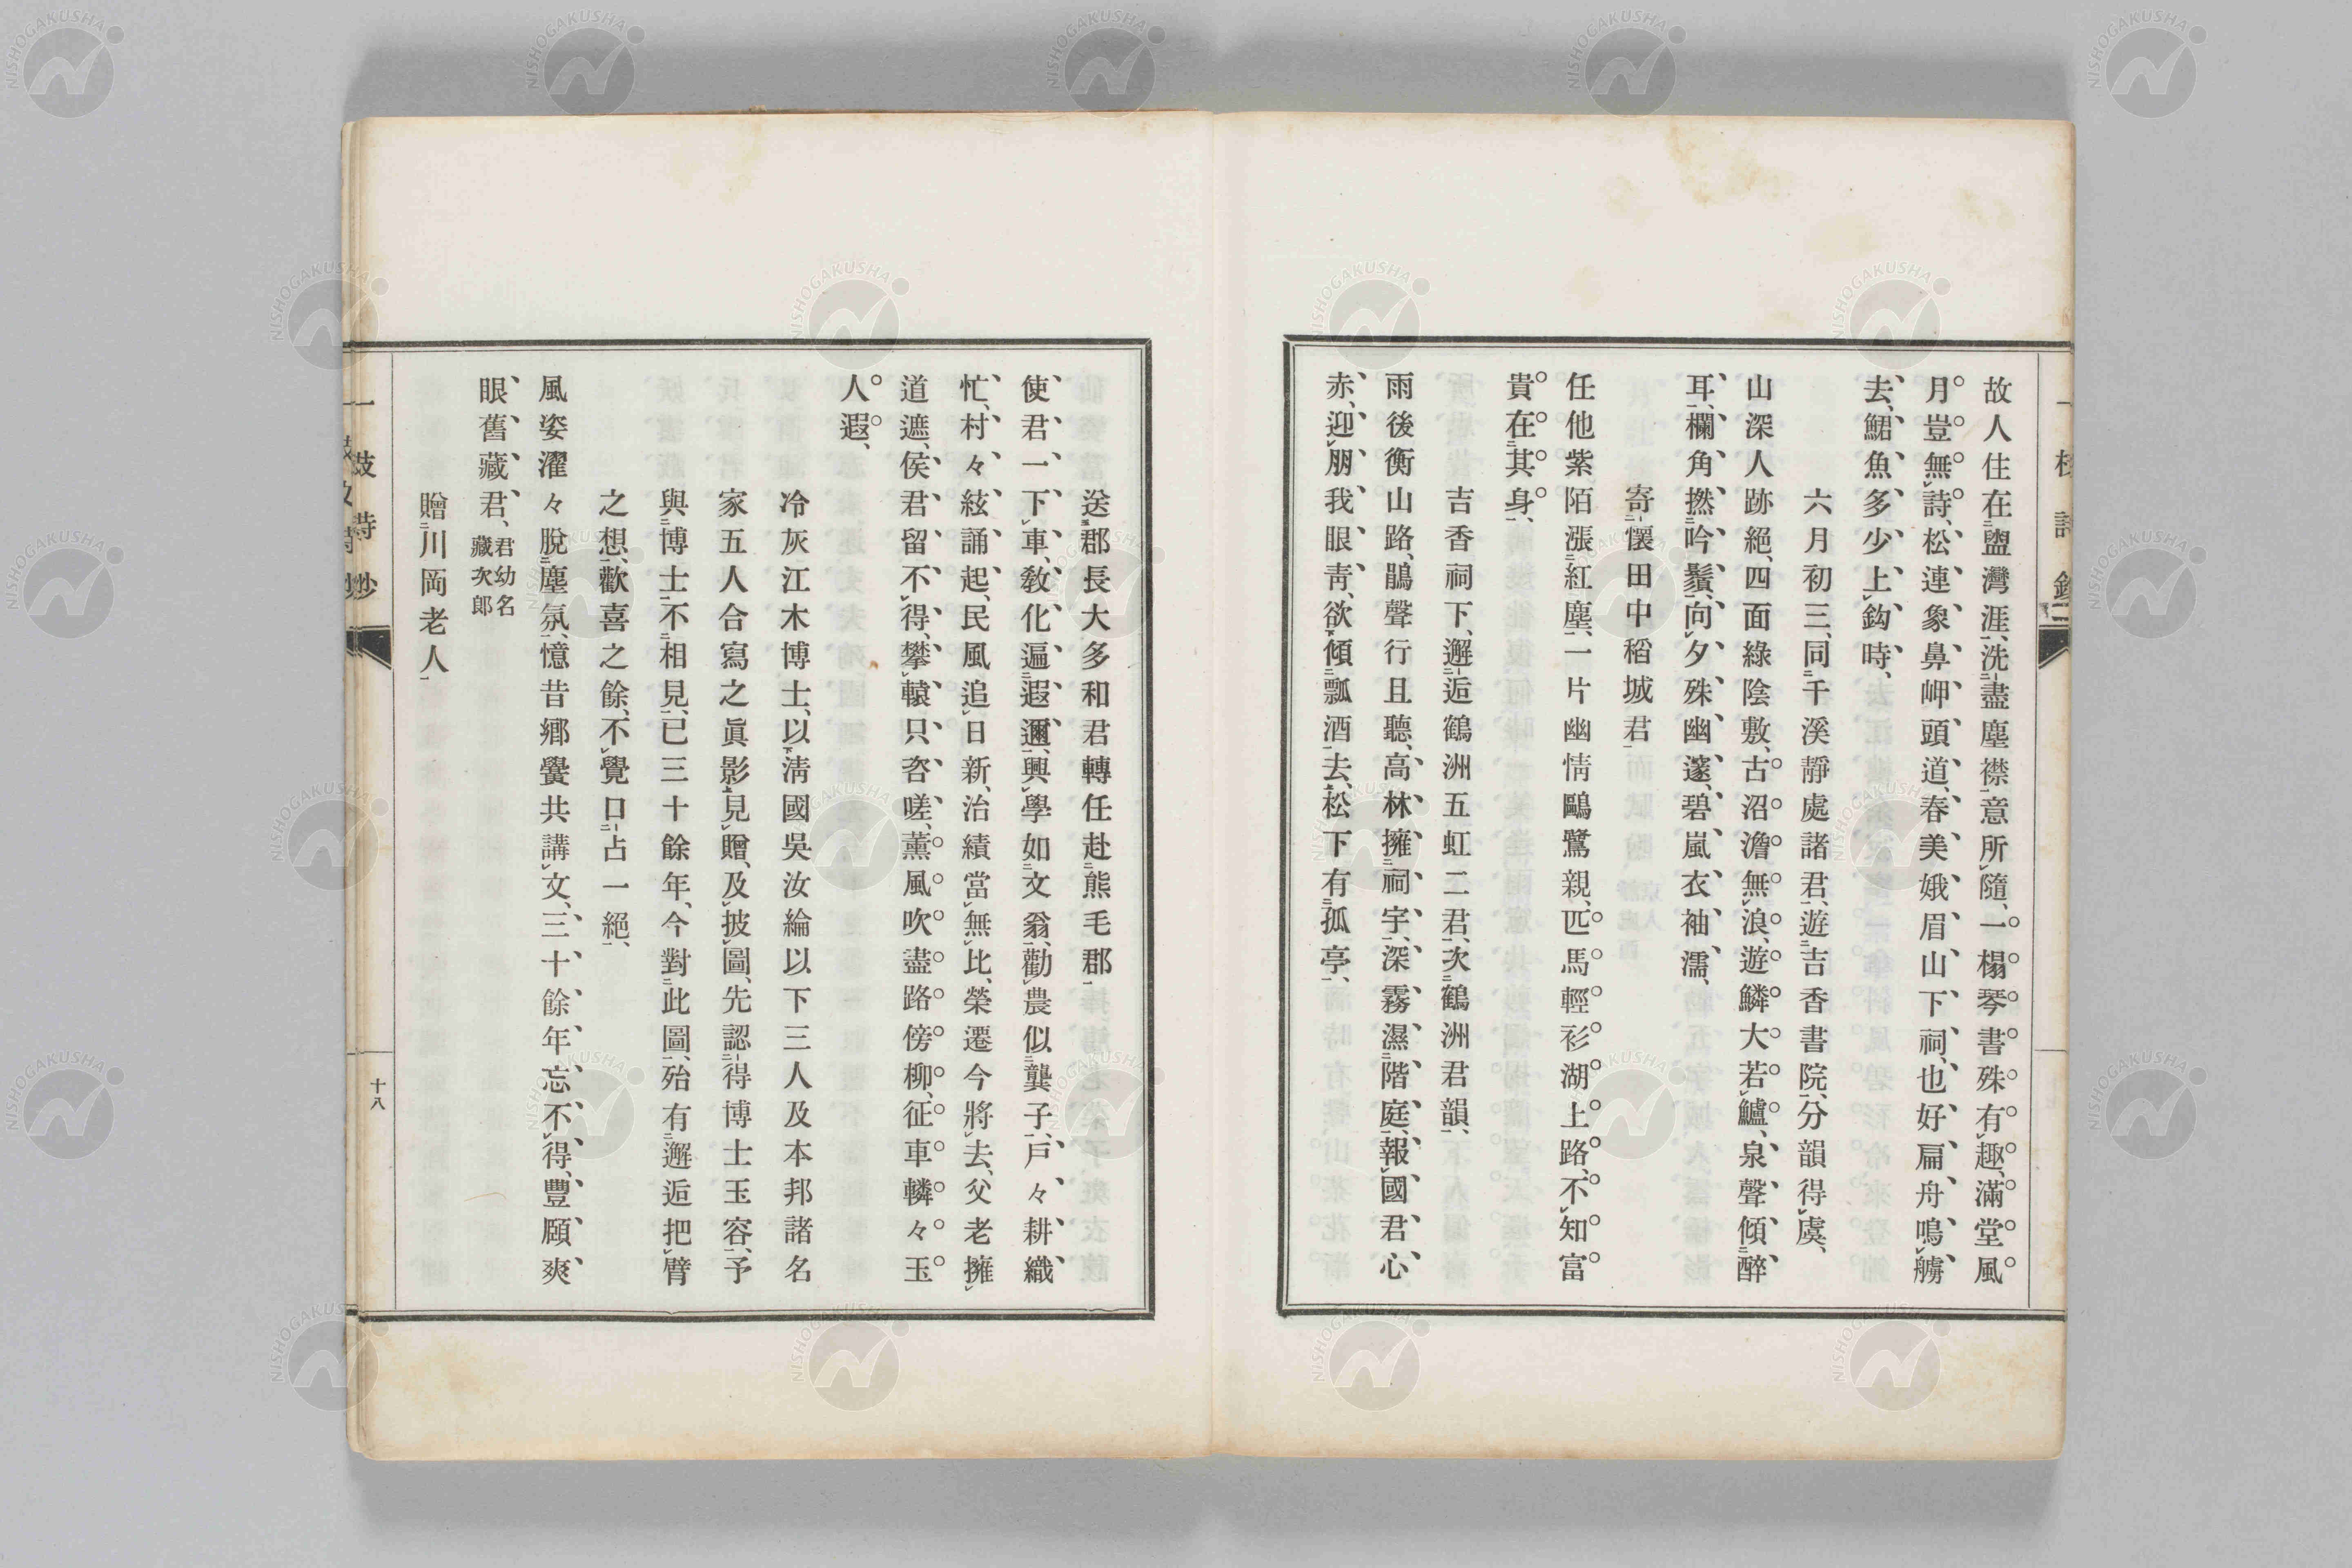 故人住在盬灣涯、洗盡塵襟意所隨、一榻琴書殊有趣、滿堂風
月豈無詩、松連象鼻岬頭道、春美娥眉山下祠、也好扁舟鳴艣
去、鯤魚多少上鈎時、
六月初三、同千溪靜處諸君、遊吉香書院、分韻得虞、
山深人跡絕、四面綠陰敷、古沼澹無浪、遊鱗大若鱸、泉聲傾醉
耳、欄角撚吟鬚、向夕殊幽邃、碧嵐衣袖濡、
寄懷田中稻城君
任他紫陌漲紅塵、一片幽情鷗鷺親、匹馬輕衫湖上路、不知富
貴在其身、
吉香祠下、邂逅鶴洲五虹二君、次鶴洲君韻、
雨後衡山路、鵑聲行且聽、高林擁祠宇、深霧濕階庭、報國君心
赤、迎朋我眼靑、欲傾瓢酒去、松下有孤亭、
送郡長大多和君轉任赴熊毛郡
使君一下車、敎化遍遐邇、興學如文翁、勸農似龔子、戶々耕織
忙、村々絃誦起、民風追日新、治績當無比、榮遷今將去、父老擁
道遮、侯君留不得、攀轅只咨嗟、薰風吹盡路傍柳、征車轔々玉
人遐、
冷灰江木博士、以淸國吳汝綸以下三人及本邦諸名
家五人合寫之眞影見贈、及披圖、先認得博士玉容、予
與博士不相見、已三十餘年、今對此圖、殆有邂逅把臂
之想、歡喜之餘、不覺口占一絕、
風姿濯々脫塵氛、憶昔鄕黌共講文、三十餘年忘不得、豐頤爽
眼舊藏君、君幼名
藏次郞
贈川岡老人
十八